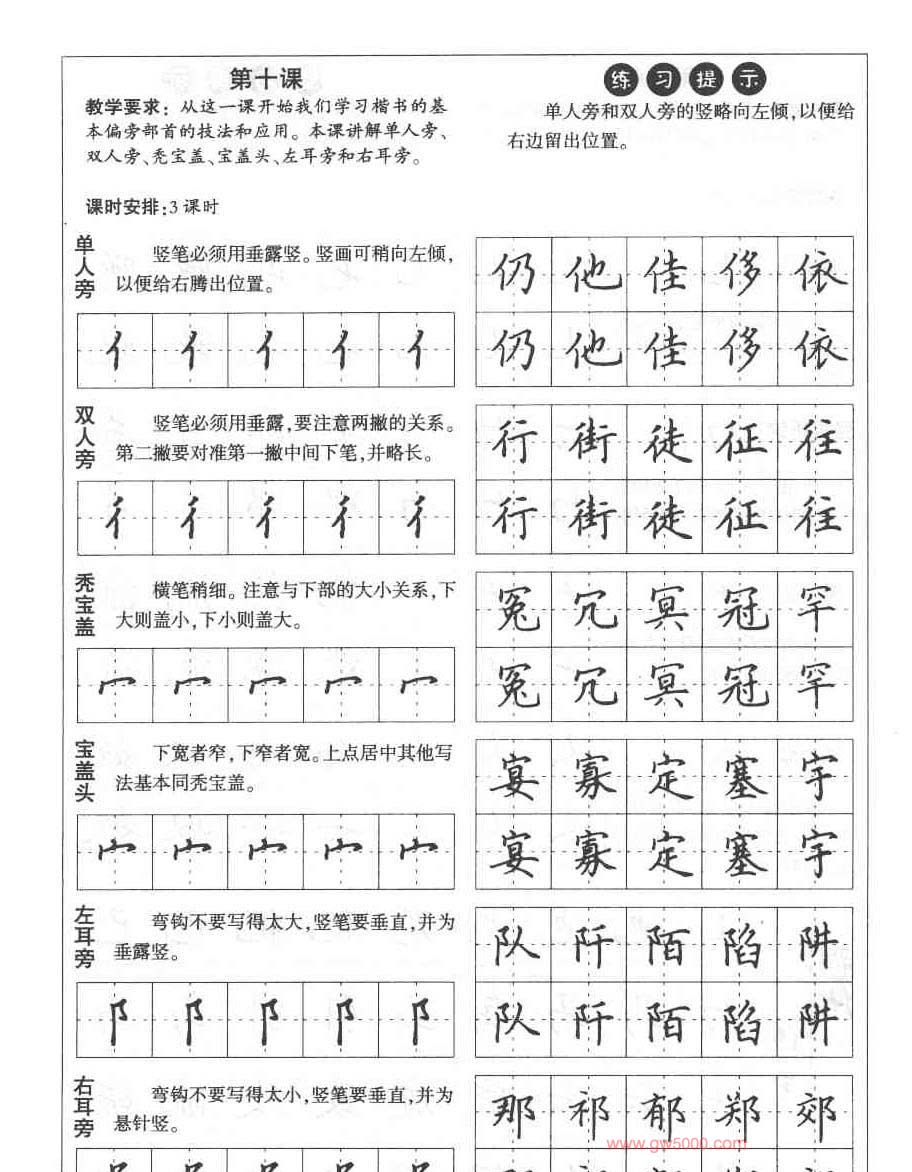 第十课
教学要求：从这一课开始我们学习楷书的基
本偏旁部首的技法和应用。本课讲解单人旁、
双人旁、秃宝盖、宝盖头、左耳旁和右耳旁。
课时安排：3课时
练习提示
单人旁和双人旁的竖略向左倾，以便给
右边留出位置。
单人旁
竖笔必须用垂露竖。竖画可稍向左倾，
以便给右腾出位置。
亻亻亻亻亻
仍他佳侈依
仍他佳侈依
双人旁
竖笔必须用垂露，要注意两撇的关系。
第二撇要对准第一撇中间下笔，并略长。
彳彳彳彳彳
行街徒征往
行街徒征往
秃宝盖
横笔稍细。注意与下部的大小关系，下
大则盖小，下小则盖大。
冖冖冖冖冖
冤冗冥冠罕
冤冗冥冠罕
宝盖头
下宽者窄，下窄者宽。上点居中其他写
法基本同秃宝盖。
宀宀宀宀宀
宴寡定塞宇
宴寡定塞宇
左耳旁
弯钩不要写得太大，竖笔要垂直，并为
垂露竖。
阝阝阝阝阝
队阡陌陷阱
队阡陌陷阱
右耳旁
弯钩不要写得太小，竖笔要垂直，并为
悬针竖。
那祁郁郑郊
www.gw5000.com